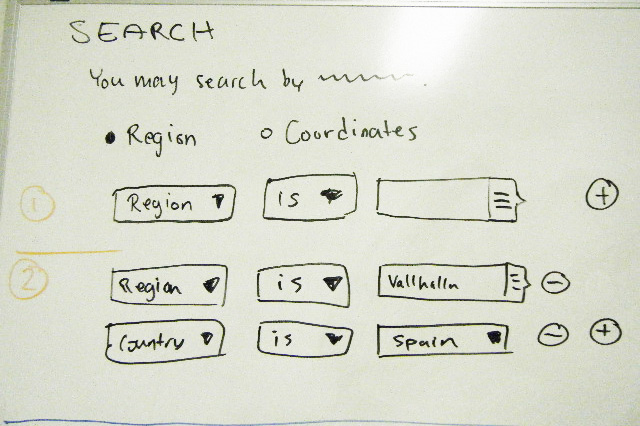 SEARCH
You may search by
Region Coordinates
1 Region is
2 Region is Vallhalla
Country is Spain